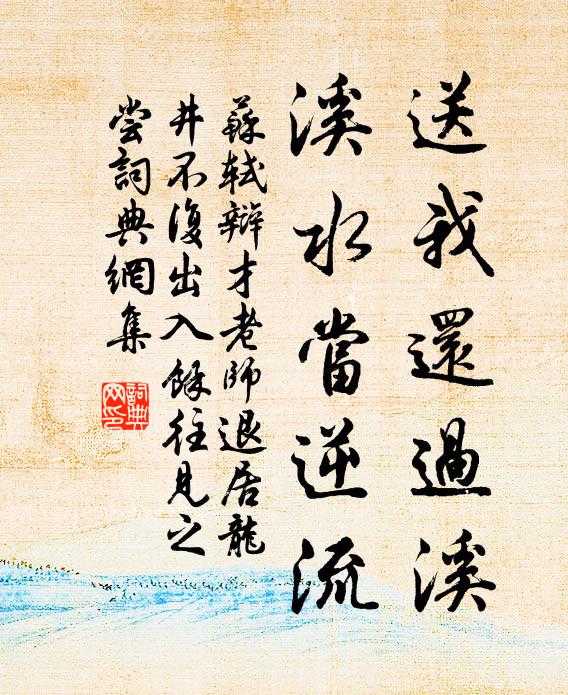 送我還過溪
溪水當逆流
蘇軾辯才老師退居龍
井不復出入餘往見之
嘗詞典網集
詞典
网印